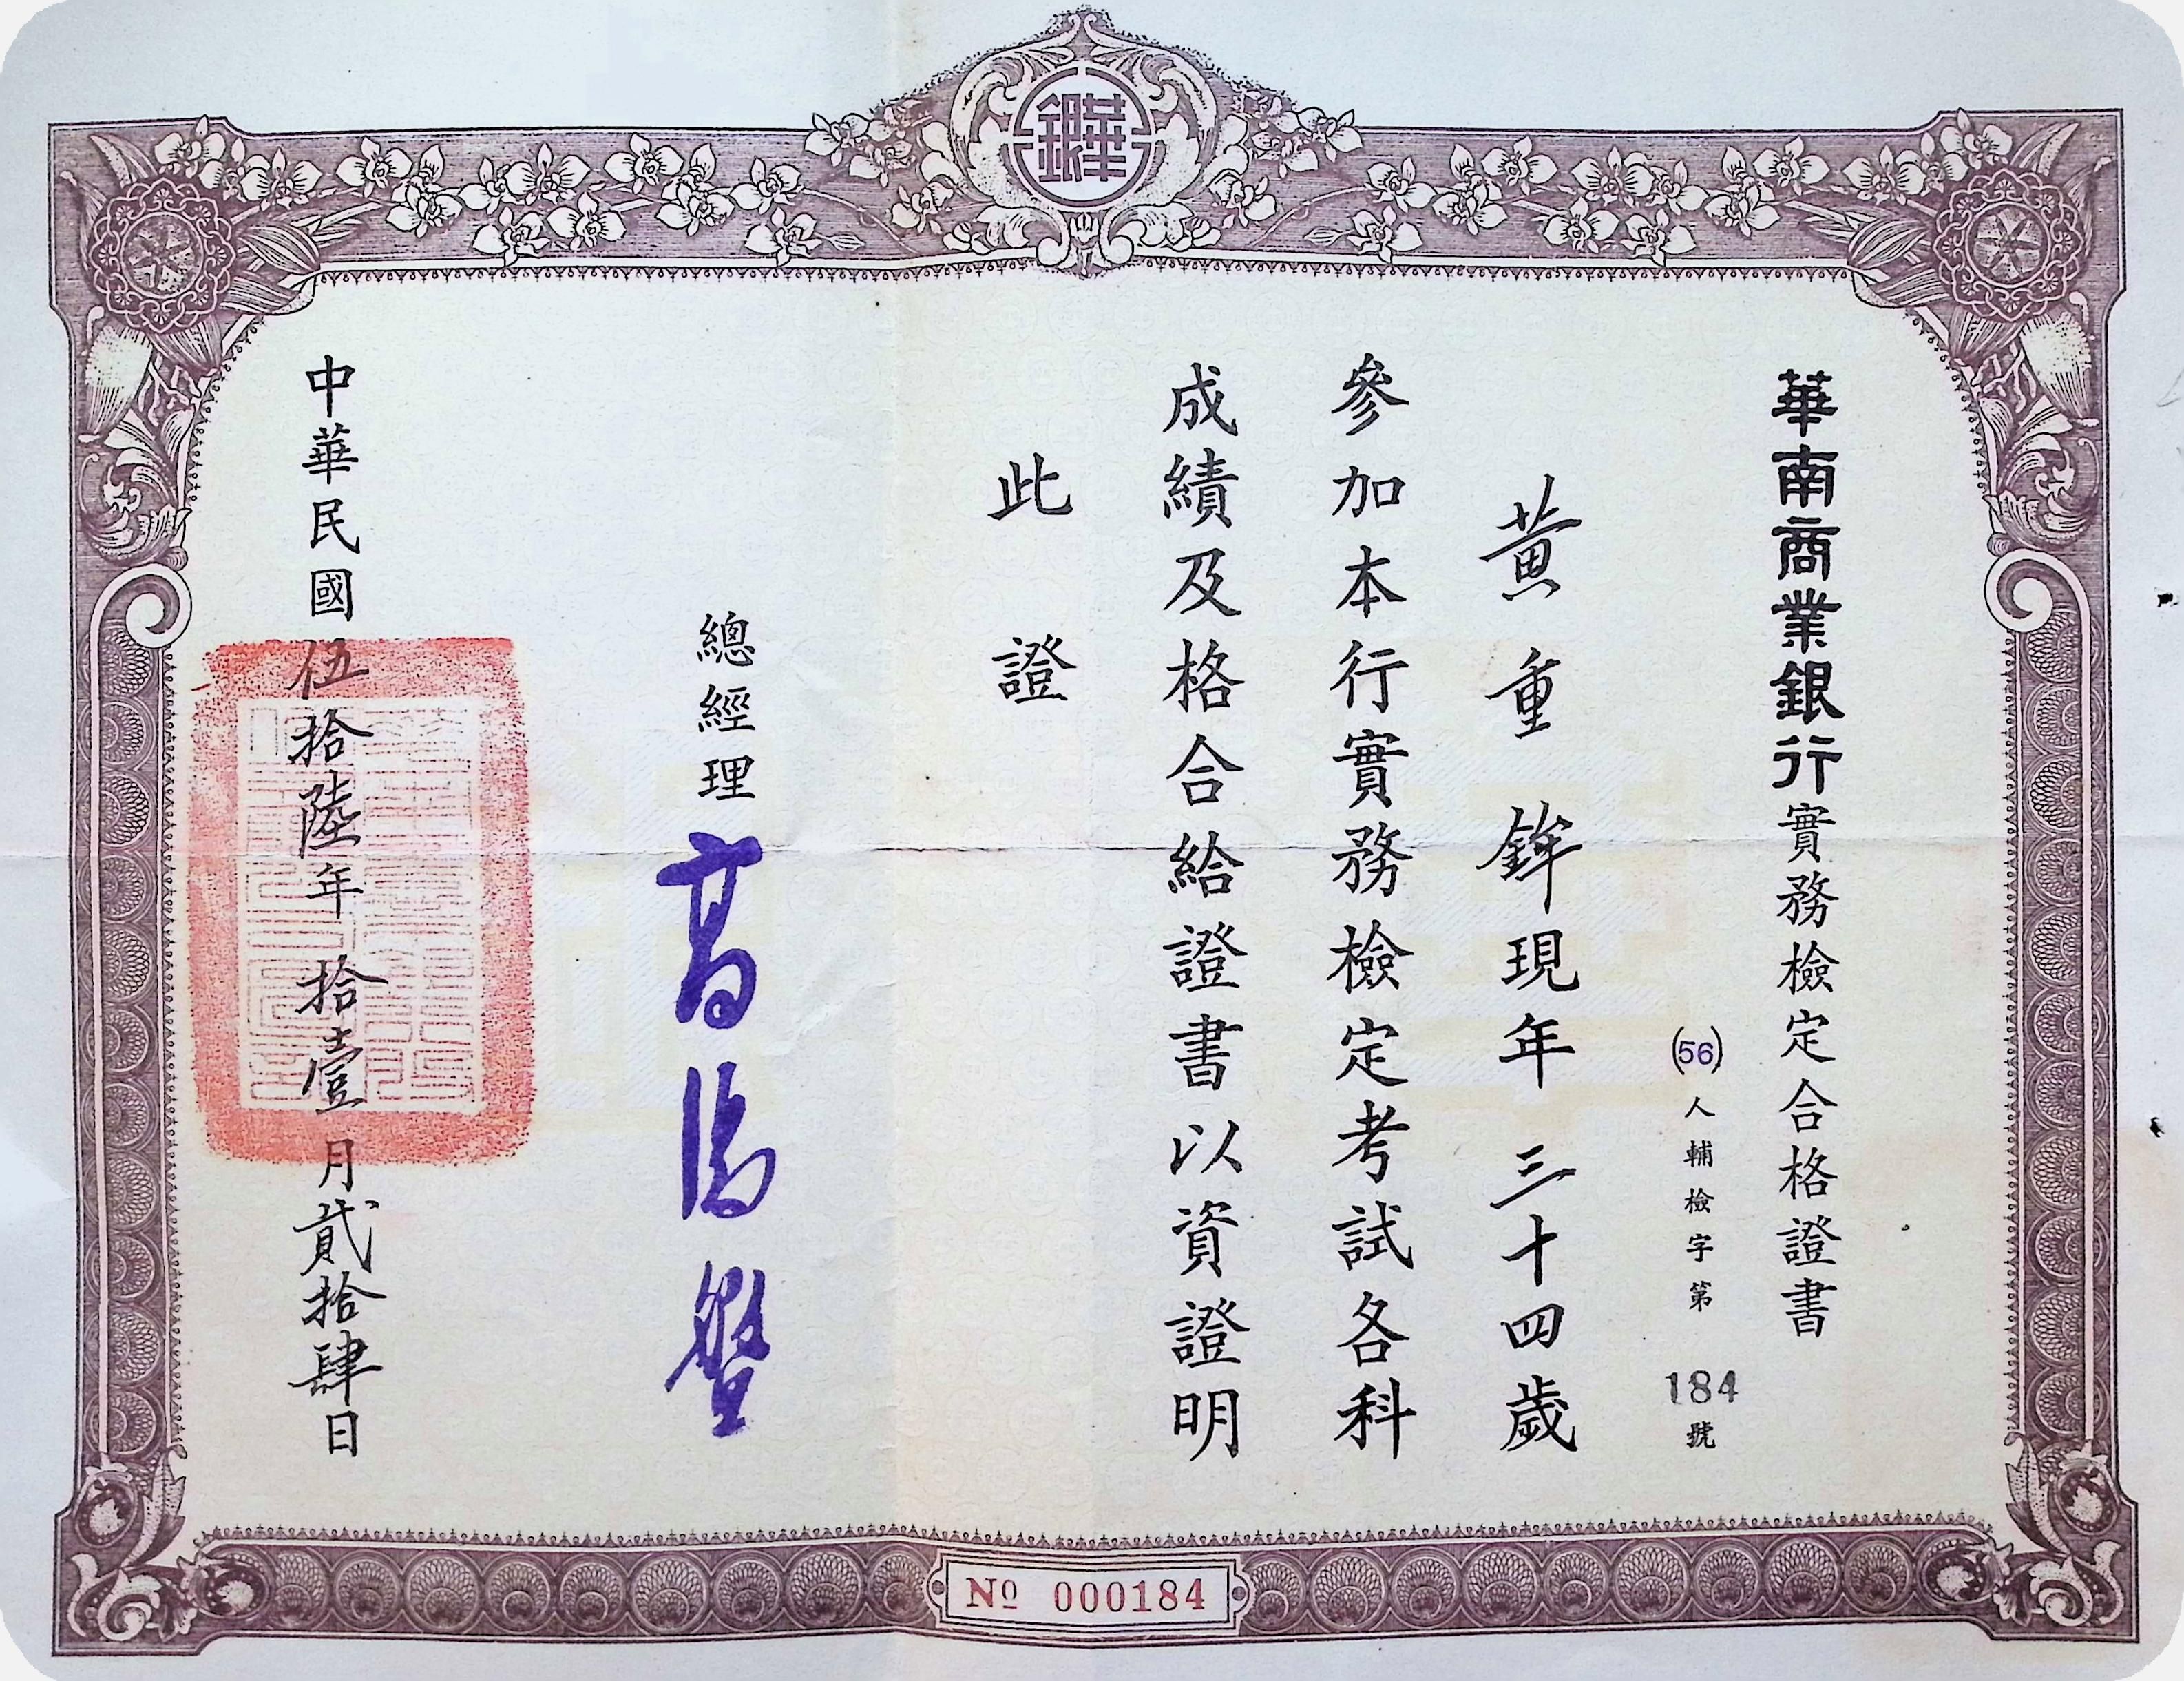 華銀
華南商業銀行實務檢定合格證書
(56)人輔檢字第184號
黃重鉾現年三十四歲
參加本行實務檢定考試各科
成績及格合給證書以資證明
此證
總經理高湯盤
中華民國伍拾陸年拾壹月貳拾肆日
Nº 000184